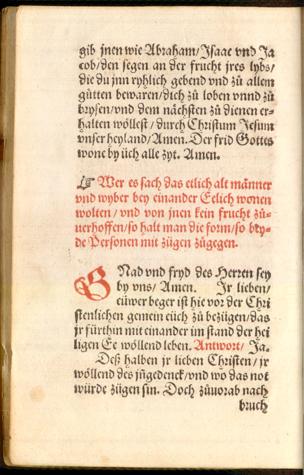 gib jnen wie Abraham/ Jsaac vnd Ja
cob/ den segen an der frucht jres lybs/
die du jnn ryhlich gebend vnd zů allem
gůtten bewaren/ dich zů loben vnnd zů
brysen/ vnd dem nächsten zů dienen er-
halten wöllest/ durch Christum Jesum
vnser heyland/ Amen. Der frid Gottes
wone by üch alle zyt. Amen.
Wer es sach das etlich alt männer
vnd wyber bey einander Eelich wonen
wolten/ vnd von jnen kein frucht zů-
uerhoffen/ so halt man die form/ so bey-
de Personen mit zügen zůgegen.
GNad vnd fryd des Herren sey
by vns/ Amen. Jr lieben/
eüwer beger ist hie vor der Chri
stenlichen gemein eüch zů bezügen/ das
jr fürthin mit einander im stand der hei
ligen Ee wöllend leben. Antwort/ Ja.
Deß halben jr lieben Christen/ jr
wöllend des jngedenck/ vnd wo das not
wurde zügen sin. Doch zůuorab nach
bruch